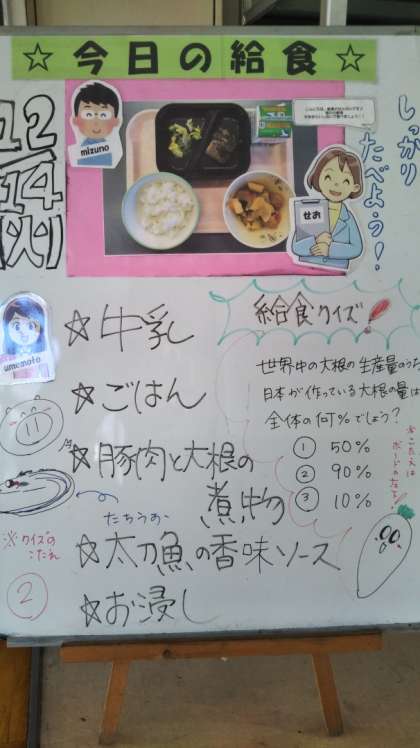 ☆今日の給食☆
12/14(火)
mizuno
せお
しっかり
たべよう!
umemoto
☆牛乳
☆ごはん
☆豚肉と大根の
煮物
たちうお
☆太刀魚の香味ソース
☆お浸し
給食クイズ!
世界中の大根の生産量のうち
日本が作っている大根の量は
全体の何%でしょう?
① 50%
② 90%
③ 10%
※こたえは
ボードの左下!
※クイズの
こたえ
②